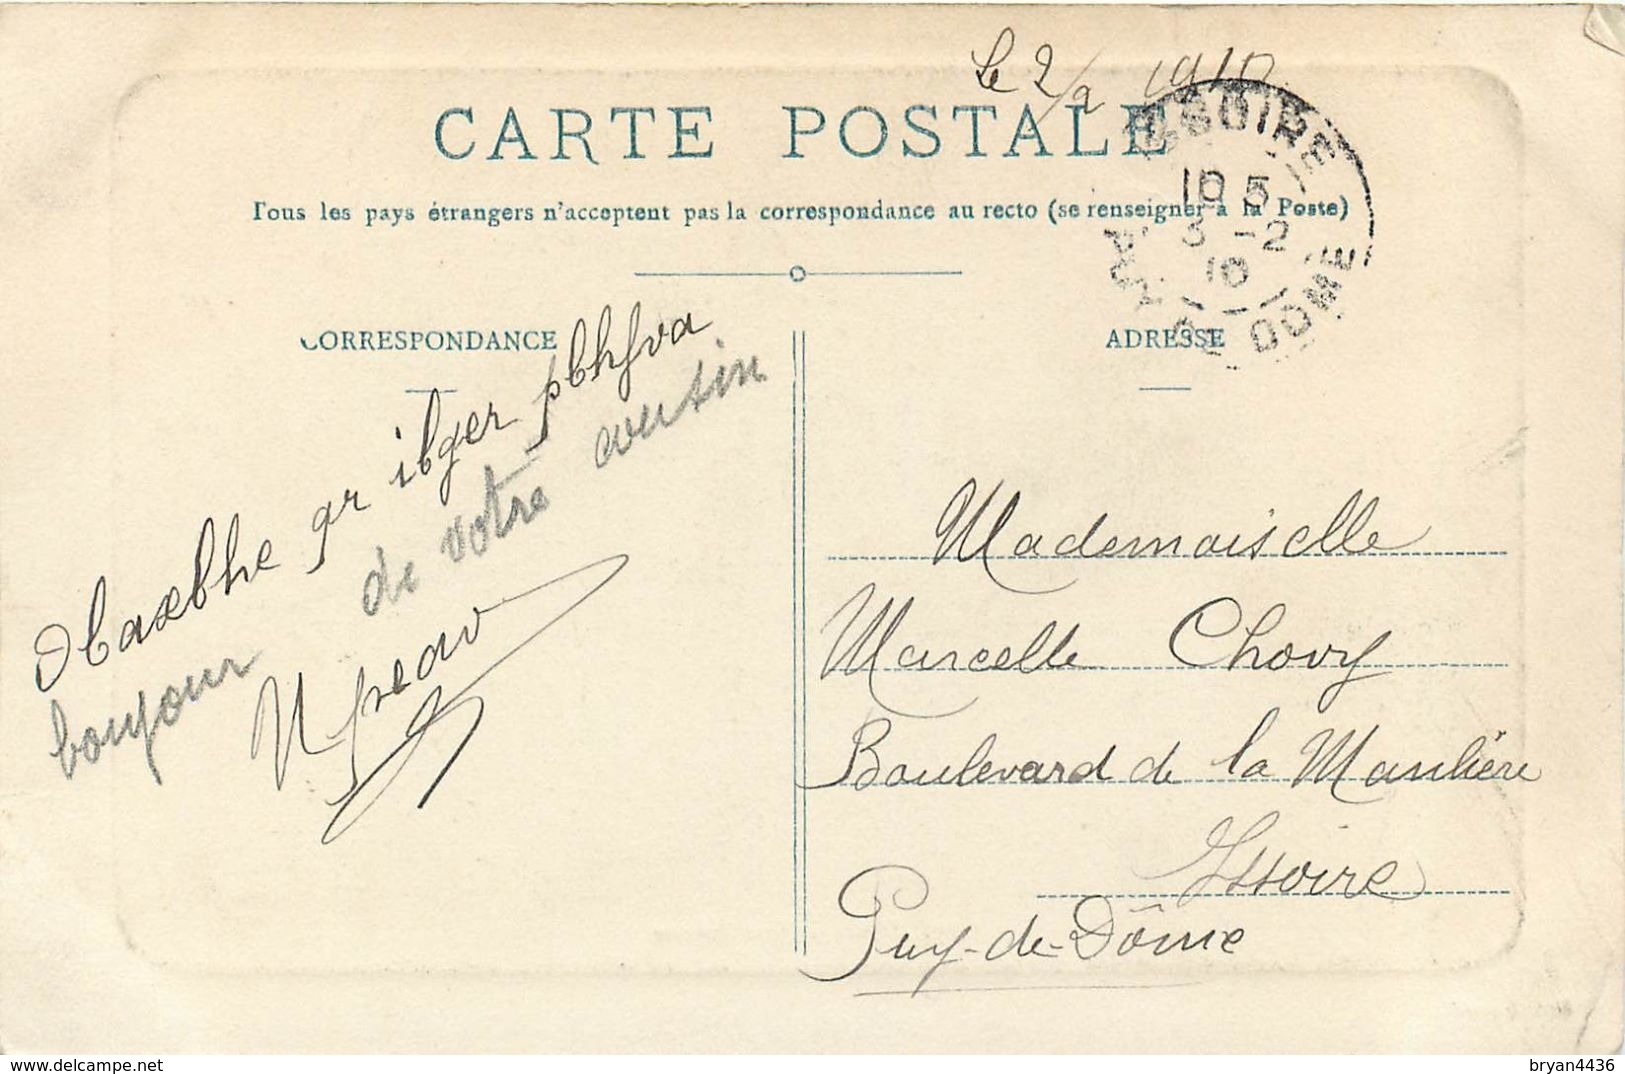 Le 2/2 1910
CARTE POSTALE
Tous les pays étrangers n'acceptent pas la correspondance au recto (se renseigner à la Poste)
ISSOIRE
10 5
3 -2
10
PUY DE DOME
CORRESPONDANCE
ADRESSE
gr ilger pbhfva
bonjour de votre cousin
Mademoiselle
Marcelle Chovy
Boulevard de la Manlière
Issoire
Puy-de-Dôme
www.delcampe.net
bryan4436